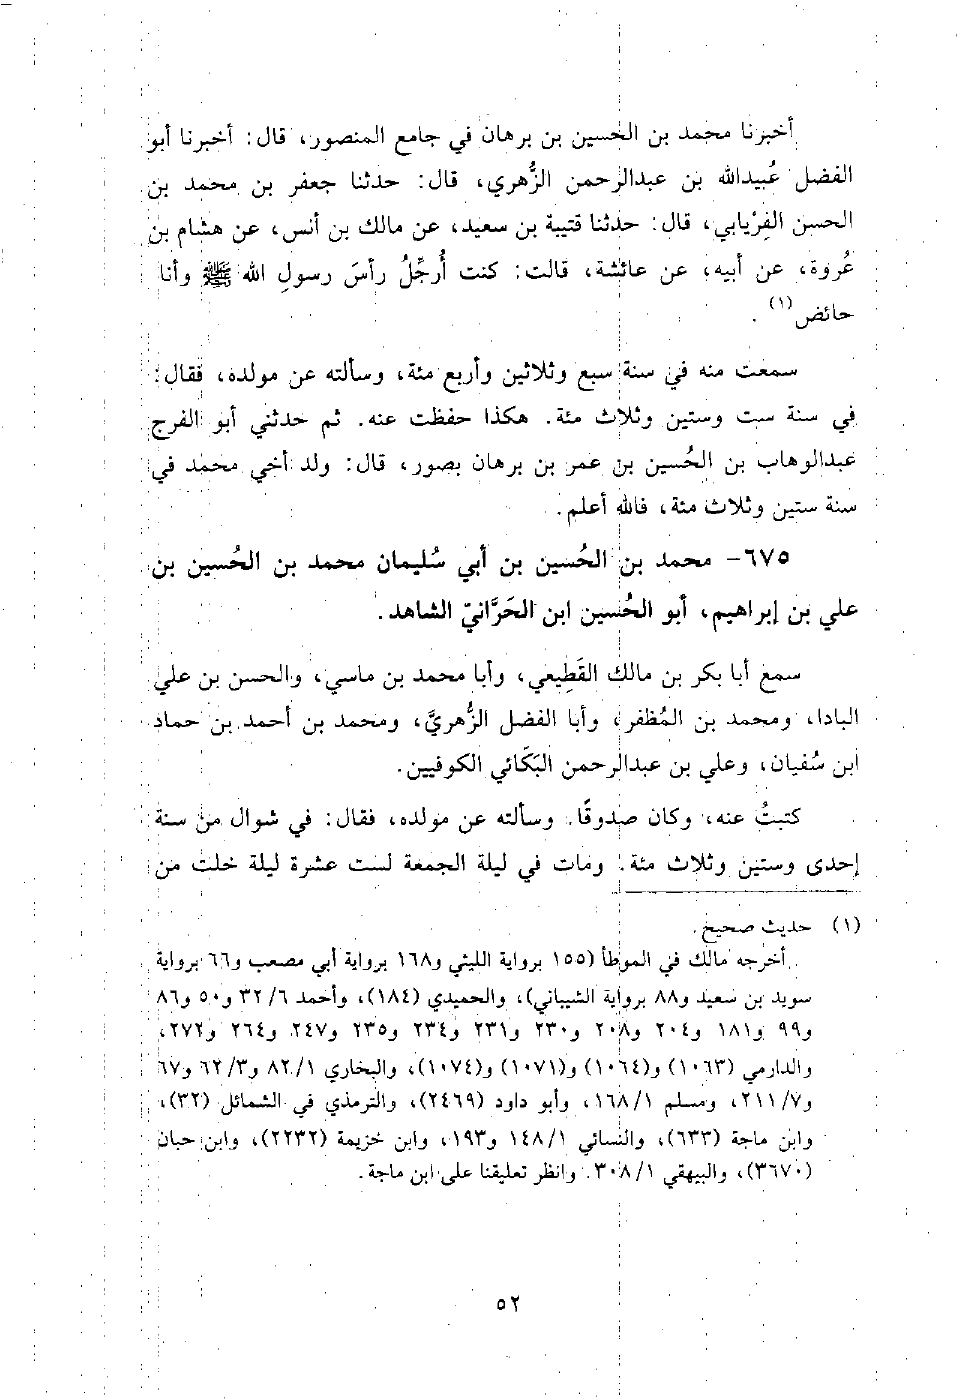 أخبرنا محمد بن الحسين بن برهان في جامع المنصور، قال: أخبرنا أبو
الفضل عُبيدالله بن عبدالرحمن الزُّهري، قال: حدثنا جعفر بن محمد بن
الحسن الفِرْيابي، قال: حدثنا قتيبة بن سعيد، عن مالك بن أنس، عن هشام بن
عُروة، عن أبيه، عن عائشة، قالت: كنت أُرجِّلُ رأسَ رسولِ الله ﷺ وأنا
حائض(١).
سمعت منه في سنة سبع وثلاثين وأربع مئة، وسألته عن مولده، فقال:
في سنة ست وستين وثلاث مئة. هكذا حفظت عنه. ثم حدثني أبو الفرج
عبدالوهاب بن الحُسين بن عمر بن برهان بصور، قال: ولد أخي محمد في
سنة ستين وثلاث مئة، فالله أعلم.
٦٧٥- محمد بن الحُسين بن أبي سُليمان محمد بن الحُسين بن
علي بن إبراهيم، أبو الحُسين ابن الحَرَّانيّ الشاهد.
سمع أبا بكر بن مالك القَطِيعي، وأبا محمد بن ماسي، والحسن بن علي
البادا، ومحمد بن المُظفر، وأبا الفضل الزُّهريَّ، ومحمد بن أحمد بن حماد
ابن سُفيان، وعلي بن عبدالرحمن البَكَّائي الكوفيين.
كتبتُ عنه، وكان صدوقًا. وسألته عن مولده، فقال: في شوال من سنة
إحدى وستين وثلاث مئة. ومات في ليلة الجمعة لست عشرة ليلة خلت من
(١) حديث صحيح.
أخرجه مالك في الموطأ (١٥٥ برواية الليثي و١٦٨ برواية أبي مصعب و٦٦ برواية
سويد بن سعيد و٨٨ برواية الشيباني)، والحميدي (١٨٤)، وأحمد ٦/ ٣٢ و٥٠ و٨٦
و٩٩ و١٨١ و٢٠٤ و٢٠٨ و٢٣٠ و٢٣١ و٢٣٤ و٢٣٥ و٢٤٧ و٢٦٤ و٢٧٢،
والدارمي (١٠٦٣) و(١٠٦٤) و(١٠٧١) و(١٠٧٤)، والبخاري ١/ ٨٢ و٣/ ٦٢ و٦٧
و٧/ ٢١١، ومسلم ١/ ١٦٨، وأبو داود (٢٤٦٩)، والترمذي في الشمائل (٣٢)،
وابن ماجة (٦٣٣)، والنسائي ١/ ١٤٨ و١٩٣، وابن خزيمة (٢٢٣٢)، وابن حبان
(٣٦٧٠)، والبيهقي ١/ ٣٠٨. وانظر تعليقنا على ابن ماجة.
٥٢